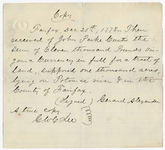 Copy
Fairfax Dec 25th, 1778. Then
received of John Parke Custis the
sum of Eleven thousand Pounds Vir-
ginia Currency in full for a tract of
land, supposed one thousand acres,
lying on Potomac river & in the
County of Fairfax.
(Signed) Gerard Alexander
A true copy